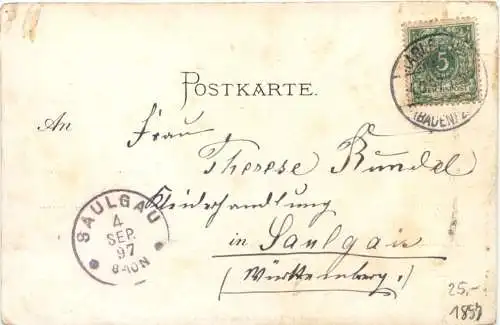 POSTKARTE.
5
REICHSPOST
(BADEN)
An
Frau
Therese Kundel
Kleiderhandlung
in Saulgau
(Württemberg.)
SAULGAU
4
SEP.
97
8-10N
25,-
1897